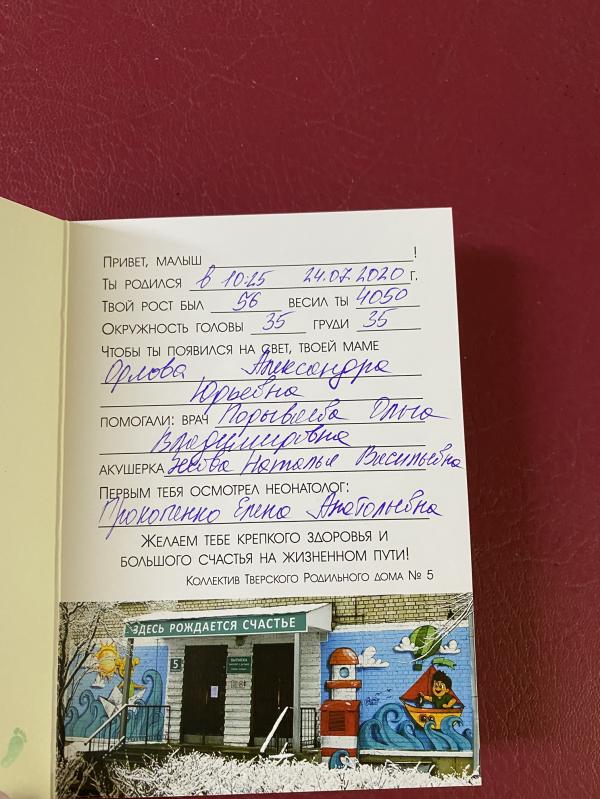 Привет, малыш !
Ты родился в 10:25 24.07.2020 г.
Твой рост был 56 весил ты 4050
Окружность головы 35 груди 35
Чтобы ты появился на свет, твоей маме
Орлова Александра
Юрьевна
помогали: врач Порываева Ольга
Владимировна
акушерка Наталья Васильевна
Первым тебя осмотрел неонатолог:
Прокопенко Елена Анатольевна
Желаем тебе крепкого здоровья и
большого счастья на жизненном пути!
Коллектив Тверского Родильного дома № 5
ЗДЕСЬ РОЖДАЕТСЯ СЧАСТЬЕ
5
ВЫПИСКА